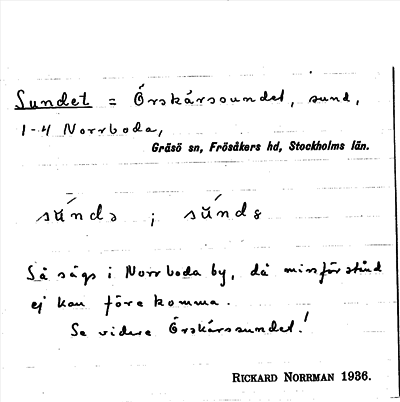 Sundet = Örskärssundet, sund,
1-4 Norrboda,
Gräsö sn, Frösåkers hd, Stockholms län.
; 
Så sägs i Norrboda by, då missförstånd
ej kan förekomma.
Se vidare Örskärssundet!
RICKARD NORRMAN 1936.